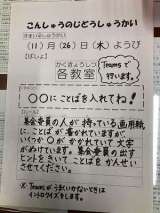 こんしゅうのじどうしゅうかい
(11)月(26)日(木)ようび
【ばしょ】
かくきょうしつ
各教室
Teamsで
行います。
〇〇にことばを入れてね!
集会委員の人が持っている画用紙
に、ことばが書かれていますが、
いくつか〇がかかれていて文字
がぬけています。集会委員の出す
ヒントをきいてことばをかんせい
させてください。
※Teamsがうまくいかないときは
イントロクイズをします。